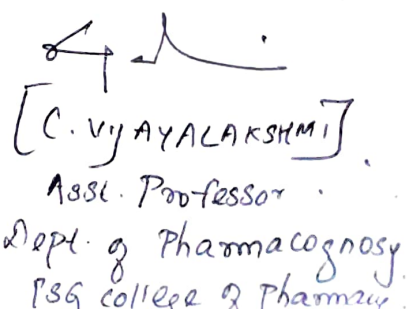 [C. VIJAYALAKSHMI]
Asst. Professor
Dept. of Pharmacognosy
PSG College of Pharmacy